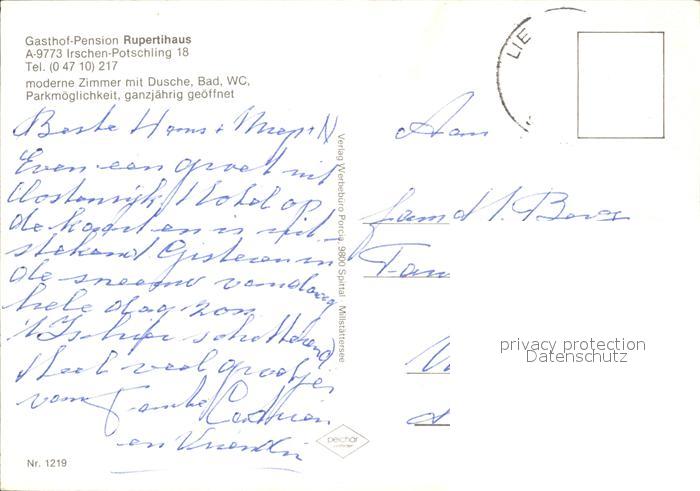 Gasthof-Pension Rupertihaus
A-9773 Irschen-Potschling 18
Tel. (0 47 10) 217
moderne Zimmer mit Dusche, Bad, WC,
Parkmöglichkeit, ganzjährig geöffnet
LIE
Beste Hans +
Even een groet uit
Oostenrijk Hotel op
de kaart en is uit-
stekend Gisteren in
de sneeuw vandaag
hele dag zon
't Is hier schitterend
Heel veel groetjes
van
en
Aan
fam
Verlag Werbebüro Porcia, 9800 Spittal - Millstättersee
peichär
Nr. 1219
privacy protection
Datenschutz